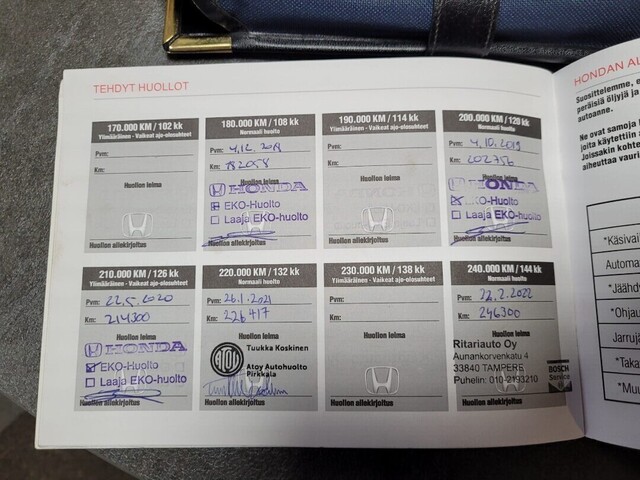 TEHDYT HUOLLOT
170.000 KM / 102 kk
Ylimääräinen - Vaikeat ajo-olosuhteet
Pvm:
Km:
Huollon leima
Huollon allekirjoitus
180.000 KM / 108 kk
Normaali huolto
Pvm: 4.12.2018
Km: 182058
Huollon leima
HONDA
EKO-Huolto
Laaja EKO-huolto
Huollon allekirjoitus
190.000 KM / 114 kk
Ylimääräinen - Vaikeat ajo-olosuhteet
Pvm:
Km:
Huollon leima
Huollon allekirjoitus
200.000 KM / 120 kk
Normaali huolto
Pvm: 4.10.2019
Km: 202756
Huollon leima
HONDA
EKO-Huolto
Laaja EKO-huolto
Huollon allekirjoitus
210.000 KM / 126 kk
Ylimääräinen - Vaikeat ajo-olosuhteet
Pvm: 22.5.2020
Km: 214300
Huollon leima
HONDA
EKO-Huolto
Laaja EKO-huolto
Huollon allekirjoitus
220.000 KM / 132 kk
Normaali huolto
Pvm: 26.1.2021
Km: 226417
Huollon leima
Tuukka Koskinen
ATOY
Atoy Autohuolto
Pirkkala
Huollon allekirjoitus
230.000 KM / 138 kk
Ylimääräinen - Vaikeat ajo-olosuhteet
Pvm:
Km:
Huollon leima
Huollon allekirjoitus
240.000 KM / 144 kk
Normaali huolto
Pvm: 22.2.2022
Km: 246300
Huollon leima
Ritariauto Oy
Aunankorvenkatu 4
33840 TAMPERE
Puhelin: 010-2193210
BOSCH
Service
Huollon allekirjoitus
HONDAN AL
Suosittelemme, e
peräisiä öljyjä ja
autoanne.
Ne ovat samoja
joita käytettiin a
Joissakin kohte
aiheuttaa vauri
*Käsivai
Automa
*Jäähdy
*Ohjau
Jarruj
*Taka
*Muu